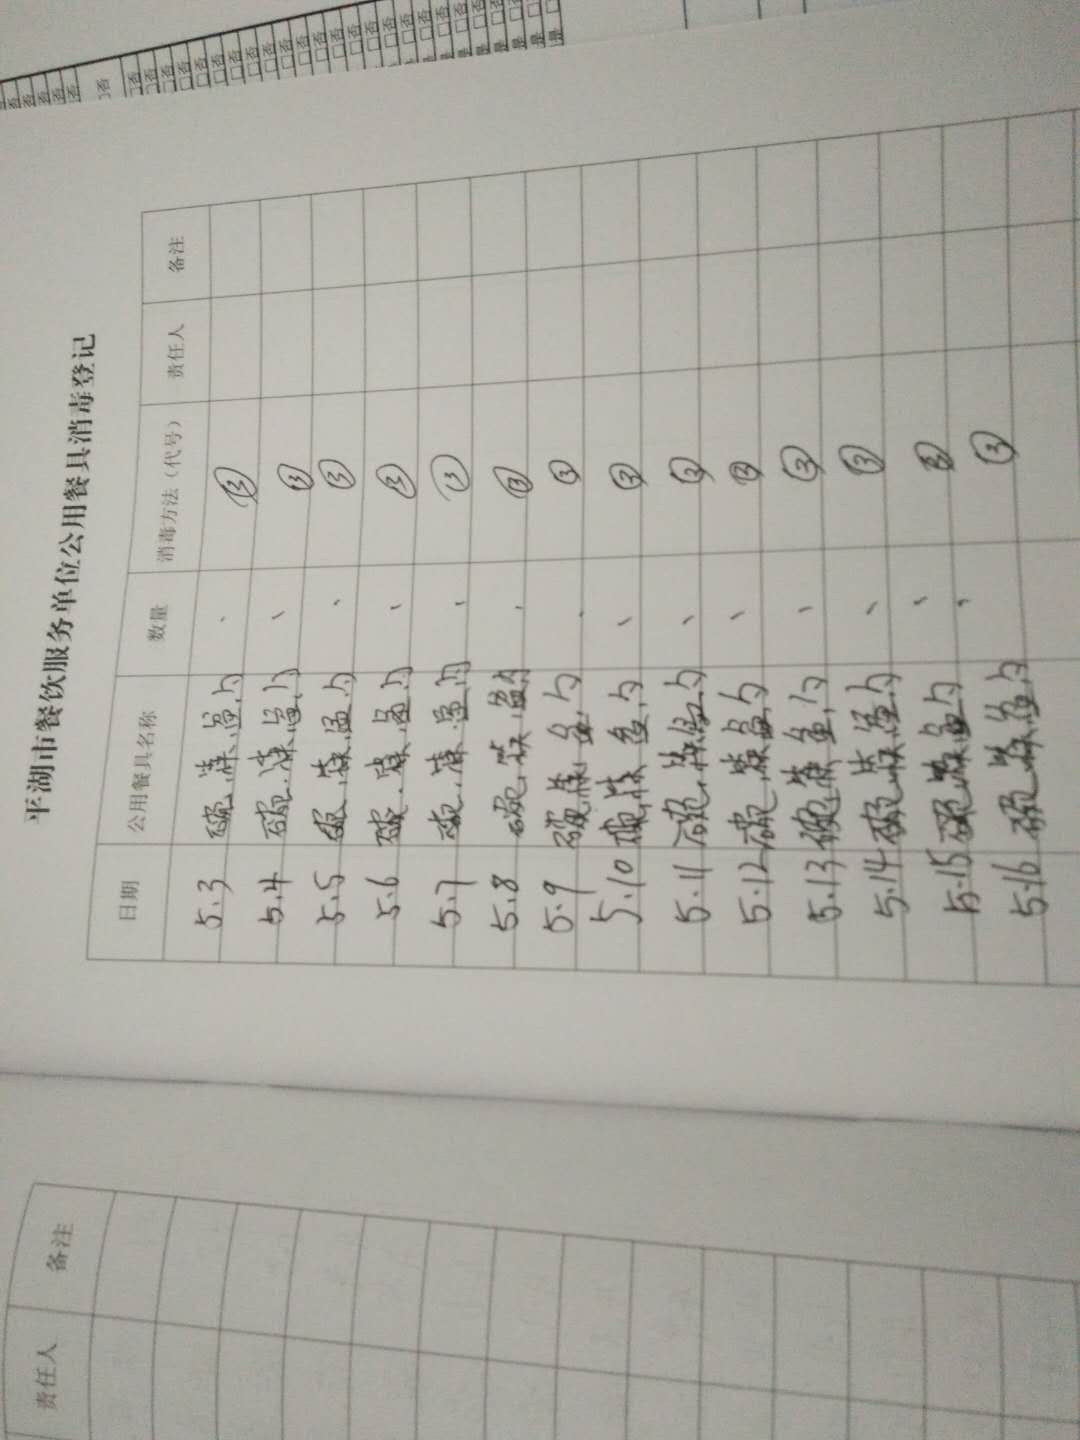 平湖市餐饮服务单位公用餐具消毒登记
日期 公用餐具名称 数量 消毒方法（代号） 责任人 备注
5.3 碗、筷、盘、勺 、 ③
5.4 碗、筷、盘、勺 、 ③
5.5 碗、筷、盘、勺 、 ③
5.6 碗、筷、盘、勺 、 ③
5.7 碗、筷、盘、勺 、 ③
5.8 碗、筷、盘、勺 、 ③
5.9 碗、筷、盘、勺 、 ③
5.10 碗、筷、盘、勺 、 ③
5.11 碗、筷、盘、勺 、 ③
5.12 碗、筷、盘、勺 、 ③
5.13 碗、筷、盘、勺 、 ③
5.14 碗、筷、盘、勺 、 ③
5.15 碗、筷、盘、勺 、 ③
5.16 碗、筷、盘、勺 、 ③
责任人 备注